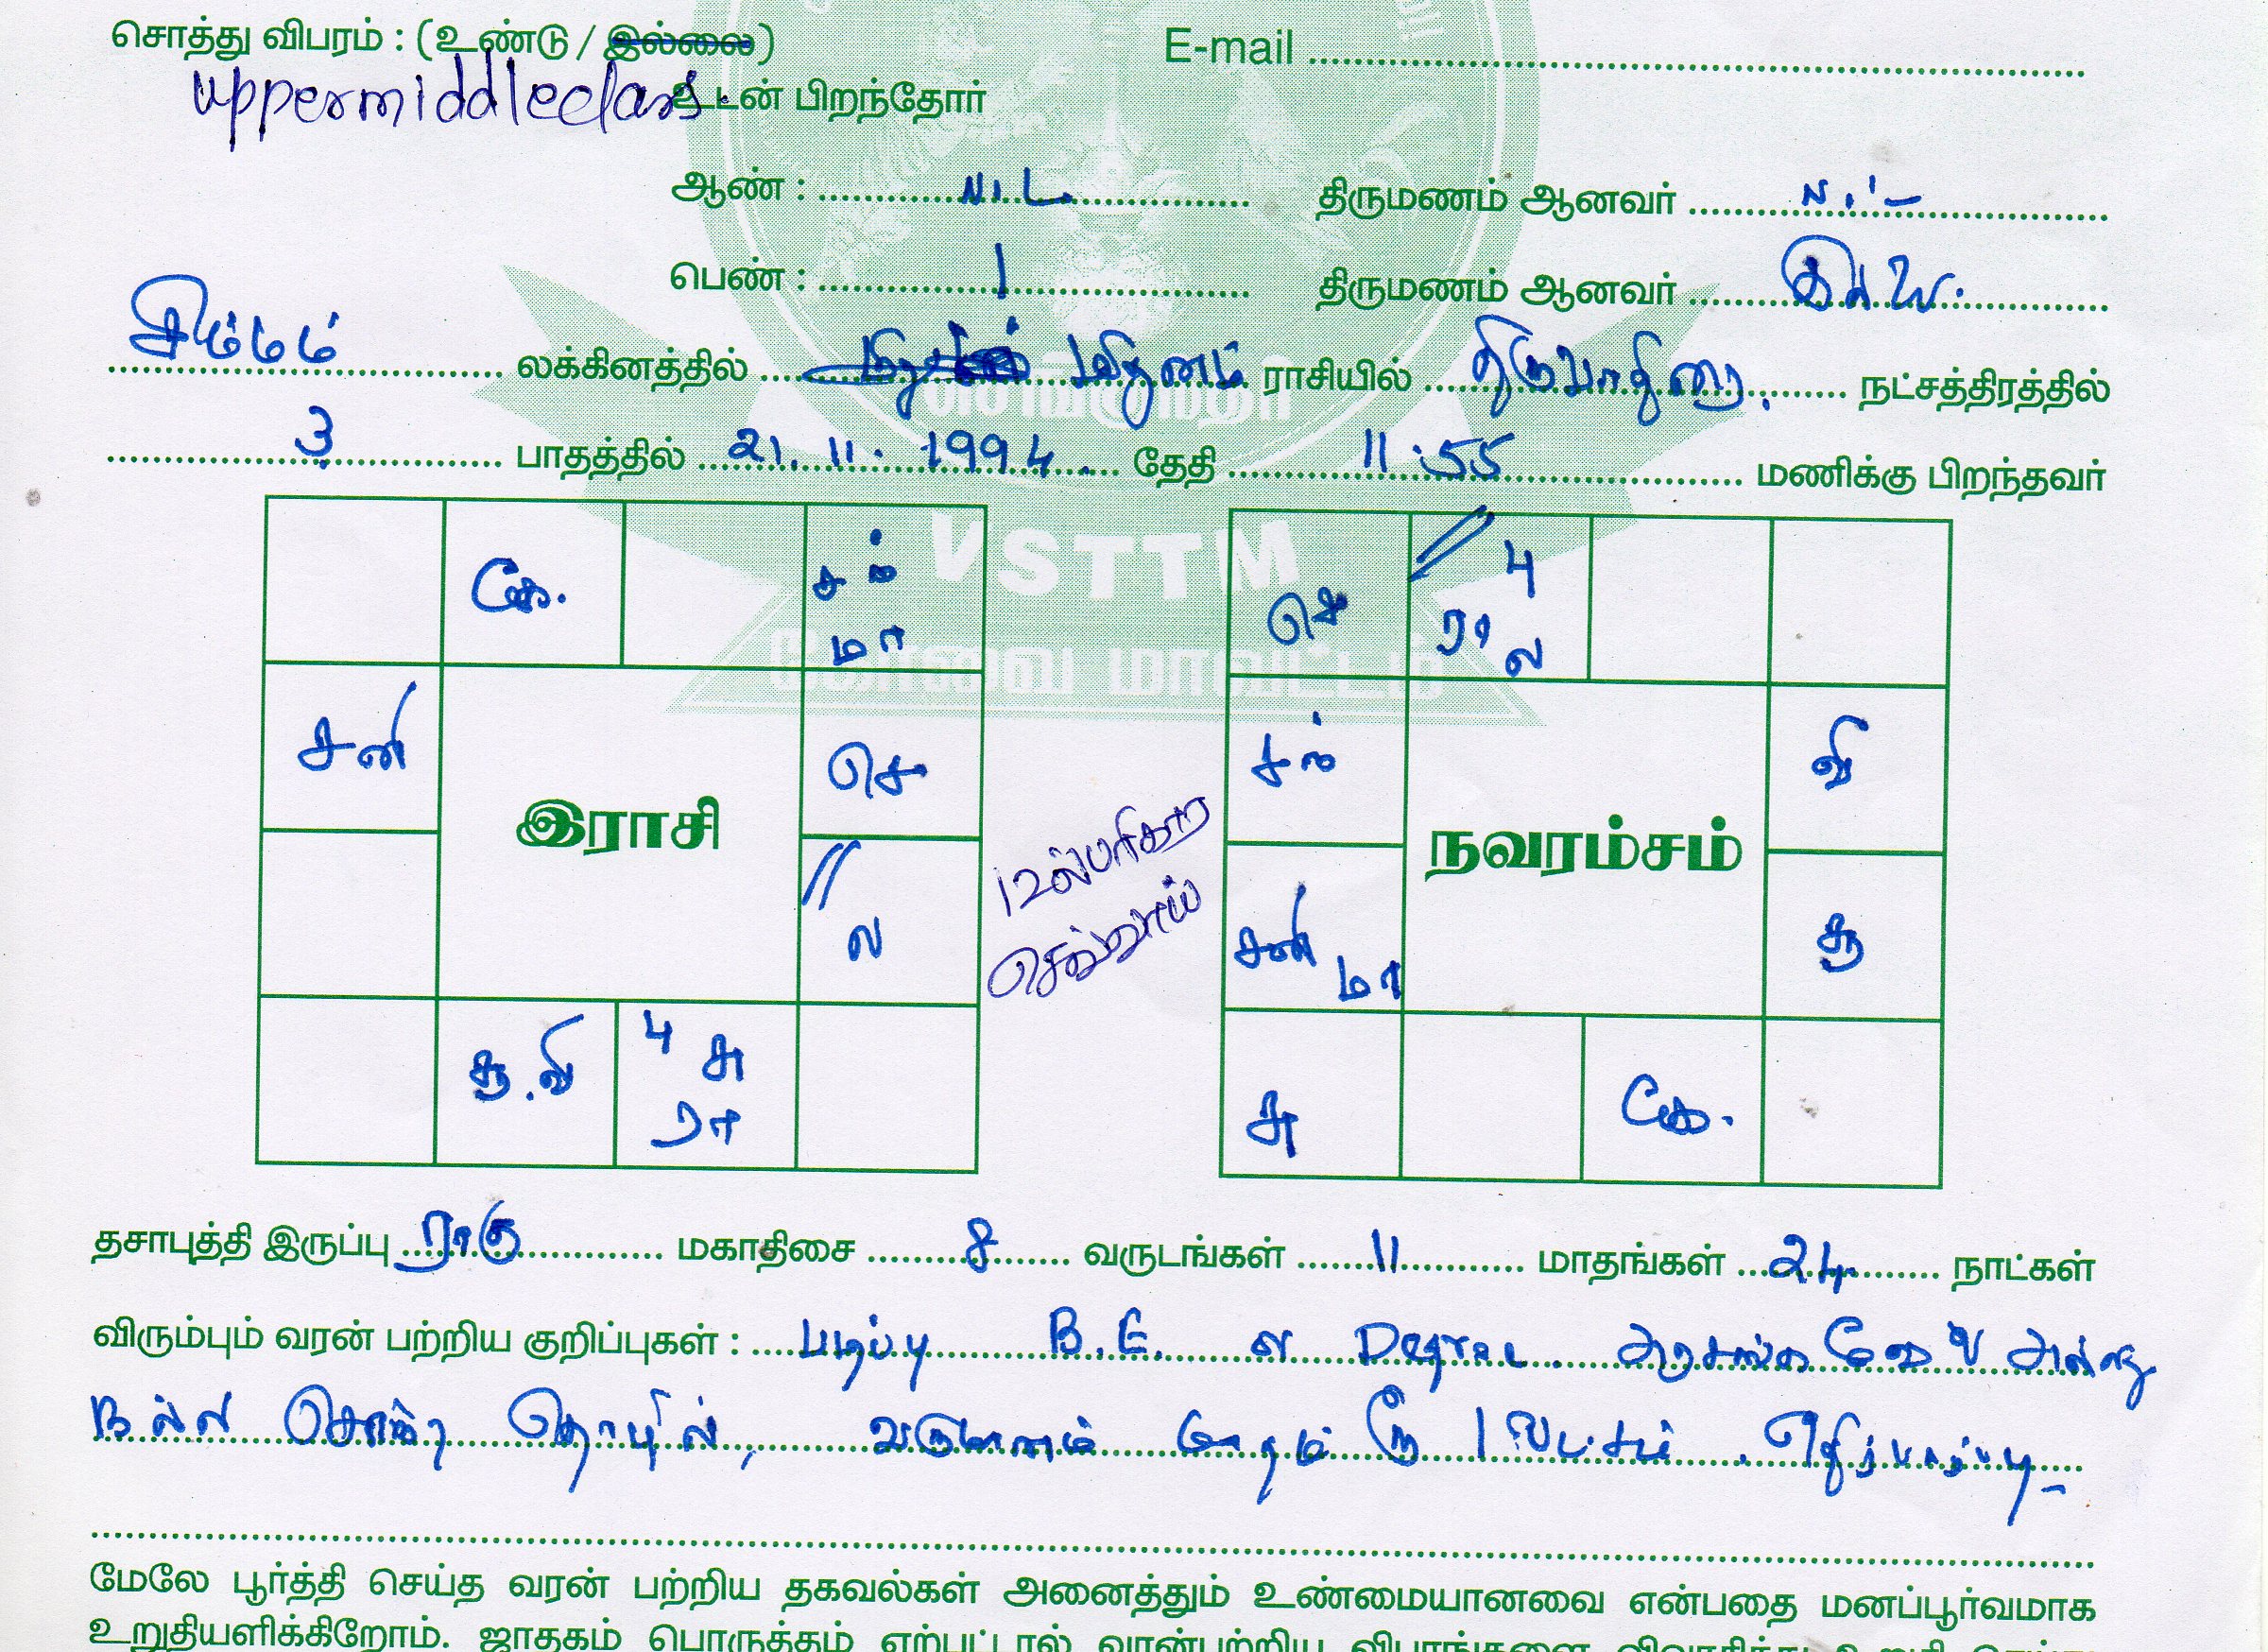 சொத்து விபரம் : (உண்டு / இல்லை) E-mail
uppermiddleclass. உடன் பிறந்தோர்
ஆண் : NIL திருமணம் ஆனவர் NIL
பெண் : 1 திருமணம் ஆனவர் இல்லை.
சிம்மம் லக்கினத்தில் மிதுனம் ராசியில் திருவாதிரை. நட்சத்திரத்தில்
3 பாதத்தில் 21.11.1994. தேதி 11.55 மணிக்கு பிறந்தவர்
VSTTM
கே. சந் மா
செ பு ரா ல
சனி செ
சந் வி
இராசி
நவரம்சம்
12ல் பரிகார
செவ்வாய்
ல
சனி மா சூ
சூ.வி பு சு ரா
சு கே.
தசாபுத்தி இருப்பு ராகு மகாதிசை 8 வருடங்கள் 11 மாதங்கள் 24 நாட்கள்
விரும்பும் வரன் பற்றிய குறிப்புகள் : படிப்பு B.E. Degree. அரசாங்க வேலை அல்லது
நல்ல சொந்த தொழில், வருமானம் மாதம் ரூ 1 லட்சம். எதிர்பார்ப்பு
மேலே பூர்த்தி செய்த வரன் பற்றிய தகவல்கள் அனைத்தும் உண்மையானவை என்பதை மனப்பூர்வமாக
உறுதியளிக்கிறோம். ஜாதகம் பொருத்தம் ஏற்பட்டால் வரன்பற்றிய விபரங்களை